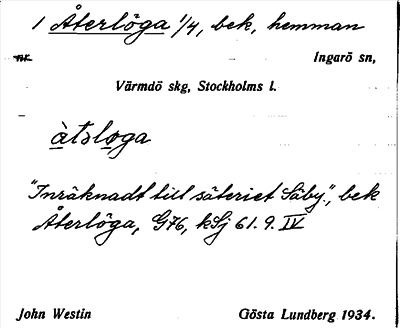 1 Återlöga 1/4, bek, hemman
nr.
Ingarö sn,
Värmdö skg, Stockholms l.
àtslǫga
"Inräknadt till säteriet Säby", bek
Återlöga, G76, kSj 61. 9. IV
John Westin Gösta Lundberg 1934.